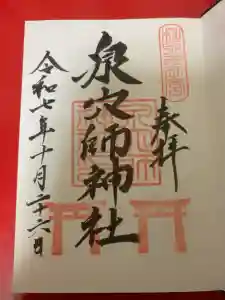 奉拝
泉穴師神社
令和七年十月二十六日